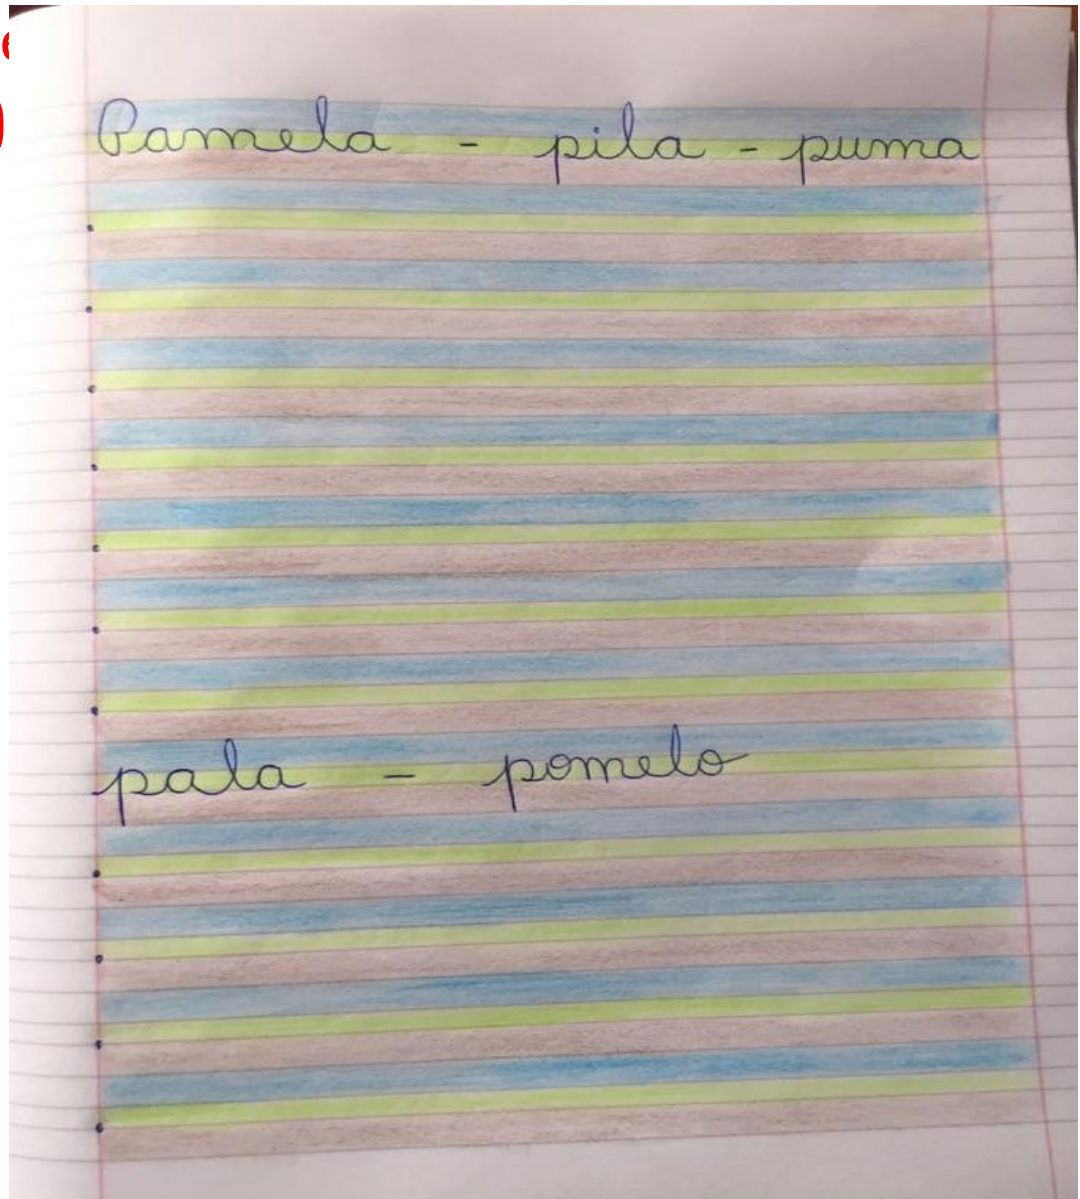 Pamela - pila - puma
pala - pomelo